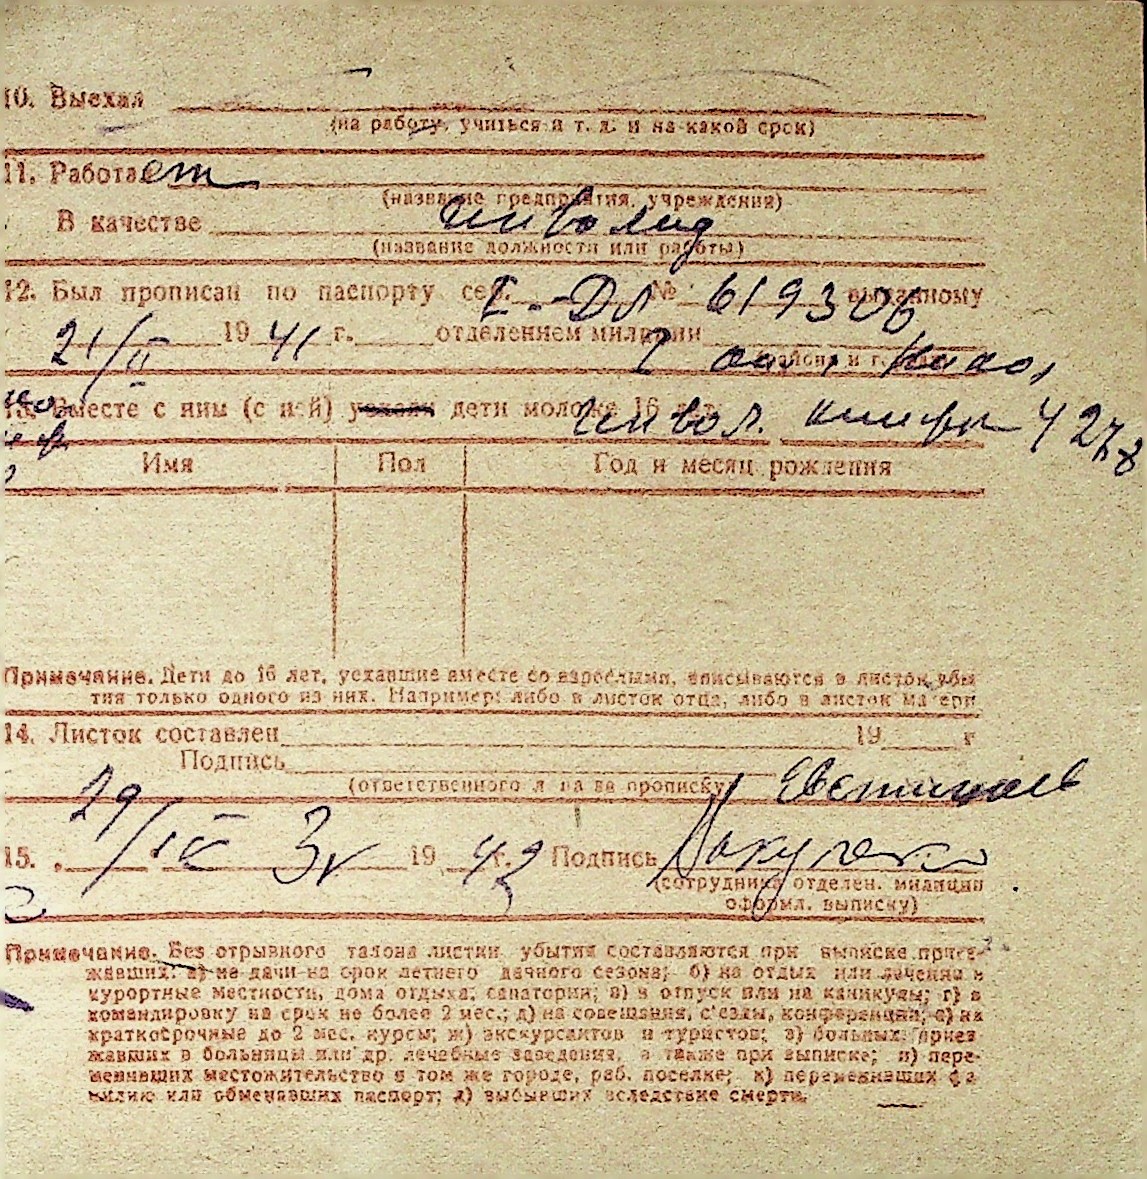 10. Выехал
(на работу, учиться и т. д. и на какой срок)
11. Работает
(название предприятия, учреждения)
В качестве инвалид
(название должности или работы)
12. Был прописан по паспорту сер. № 619306 выданному
21/II 1941 г. отделением милиции
района и г.
13. Вместе с ним (с ней) уехали дети моложе 16 лет
Имя Пол Год и месяц рождения
Примечание. Дети до 16 лет, уехавшие вместе со взрослыми, вписываются в листок убы
тия только одного из них. Например: либо в листок отца, либо в листок матери
14. Листок составлен 19 г
Подпись
(ответственного л на за прописку)
15. 29/IV 1942 г. Подпись
(сотрудника отделен. милиции
оформл. выписку)
Примечание. Без отрывного талона листки убытия составляются при выписке приез-
жавших: а) на дачи на срок летнего дачного сезона; б) на отдых или лечение в
курортные местности, дома отдыха, санатории; в) в отпуск или на каникулы; г) в
командировку на срок не более 2 мес.; д) на совещания, с'езды, конференции; е) на
краткосрочные до 2 мес. курсы; ж) экскурсантов и туристов; з) больных, приез-
жавших в больницы или др. лечебные заведения, а также при выписке; и) пере-
менивших местожительство в том же городе, раб. поселке; к) переменивших фа-
милию или обменявших паспорт; л) выбывших вследствие смерти.